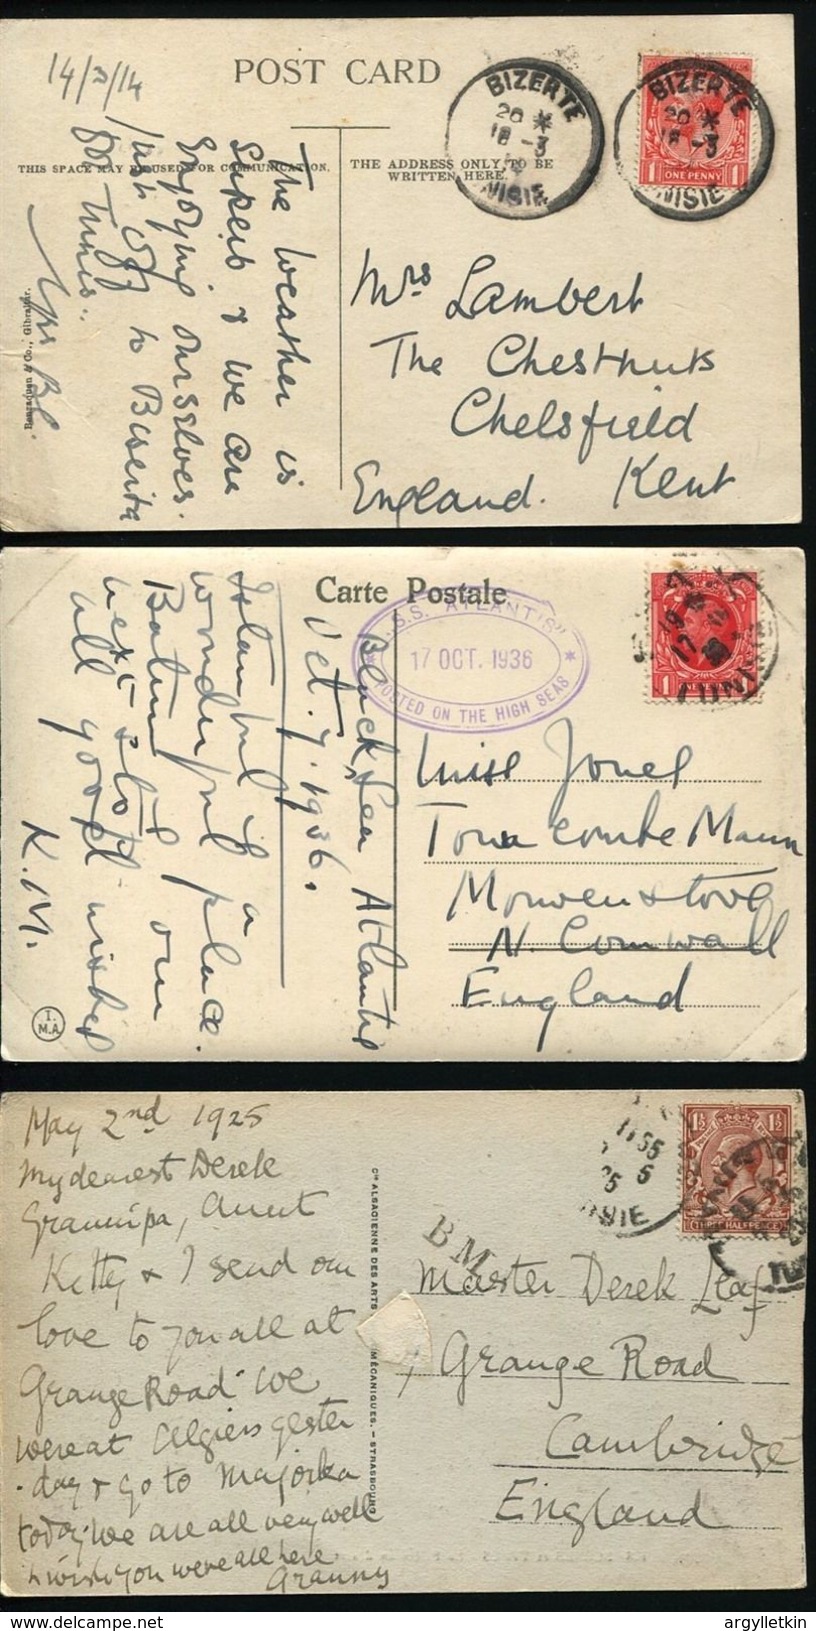 14/3/14
POST CARD
THIS SPACE MAY BE USED FOR COMMUNICATION.
THE ADDRESS ONLY TO BE
WRITTEN HERE.
The weather is
superb & we are
Enjoying ourselves.
Just off to Biserta
So Tunis.
Beanland & Co., Gibraltar.
BIZERTE
20 *
18 -3
NISIE
BIZERTE
20 *
18 -3
NISIE
ONE PENNY
Mrs Lambert
The Chestnuts
Chelsfield
Kent
England.
Carte Postale
S.S. "ATLANTIS"
17 OCT. 1936
POSTED ON THE HIGH SEAS
Black Sea Atlantis
Oct. 7. 1936.
Istanbul is a
wonderful place.
Batum is our
next stop
all good wishes
K.M.
I.
M.A
Miss Jones
Manor
Morwenstow
N. Cornwall
England
May 2nd 1925
My dearest Derek
Grannipa, Aunt
Kitty & I send our
love to you all at
Grange Road. We
were at Algiers yester
-day & go to Majorka
today. We are all very well
& wish you were all here
Granny
Cie ALSACIENNE DES ARTS MÉCANIQUES. — STRASBOURG
BM
THREE HALFPENCE
Master Derek Leaf
7 Grange Road
Cambridge
England
argylletkin